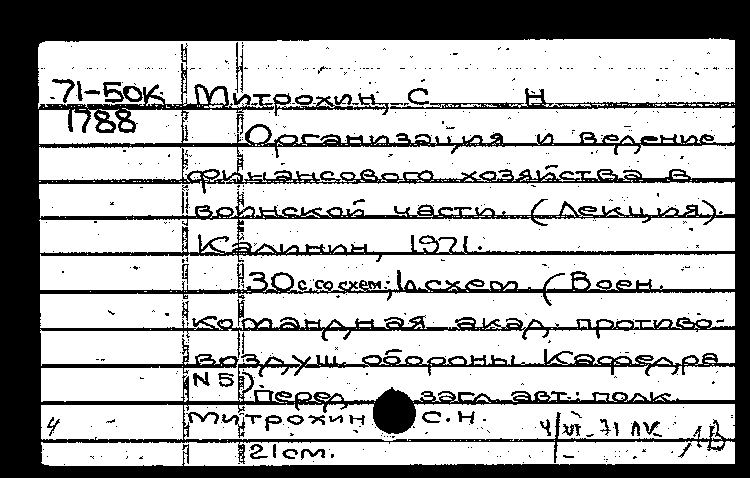 71-50K Митрохин, С Н
1788
Организация и ведение
финансового хозяйства в
воинской части. (Лекция).
Калинин, 1971.
30 с. со схем; 1 л. схем. (Воен.
командная акад. противо-
воздуш. обороны. Кафедра
N 5)
Перед загл. авт.: полк.
Митрохин С.Н.
4
4/VI-71 ЛК ЛВ
21 см.